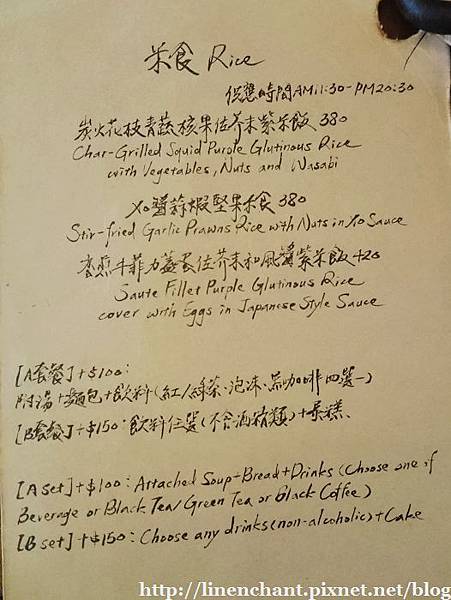 米食 Rice
供應時間AM11:30-PM20:30
炭火花枝青蔬核果佐芥末紫米飯 380
Char-Grilled Squid Purple Glutinous Rice
with Vegetables, Nuts and Wasabi
XO醬蒜蝦堅果米食 380
Stir-fried Garlic Prawns Rice with Nuts in XO Sauce
香煎牛菲力蓋蛋佐芥末和風醬紫米飯 420
Saute Fillet Purple Glutinous Rice
cover with Eggs in Japanese Style Sauce
[A套餐]+$100:
附湯+麵包+飲料(紅/綠茶、泡沫、黑咖啡四選一)
[B套餐]+$150:飲料任選(不含酒精類)+蛋糕、
[A set]+$100: Attached Soup+Bread+Drinks (Choose one of
Beverage or Black Tea/Green Tea or Black Coffee)
[B set]+$150: Choose any drinks(non-alcoholic)+Cake
http://linenchant.pixnet.net/blog